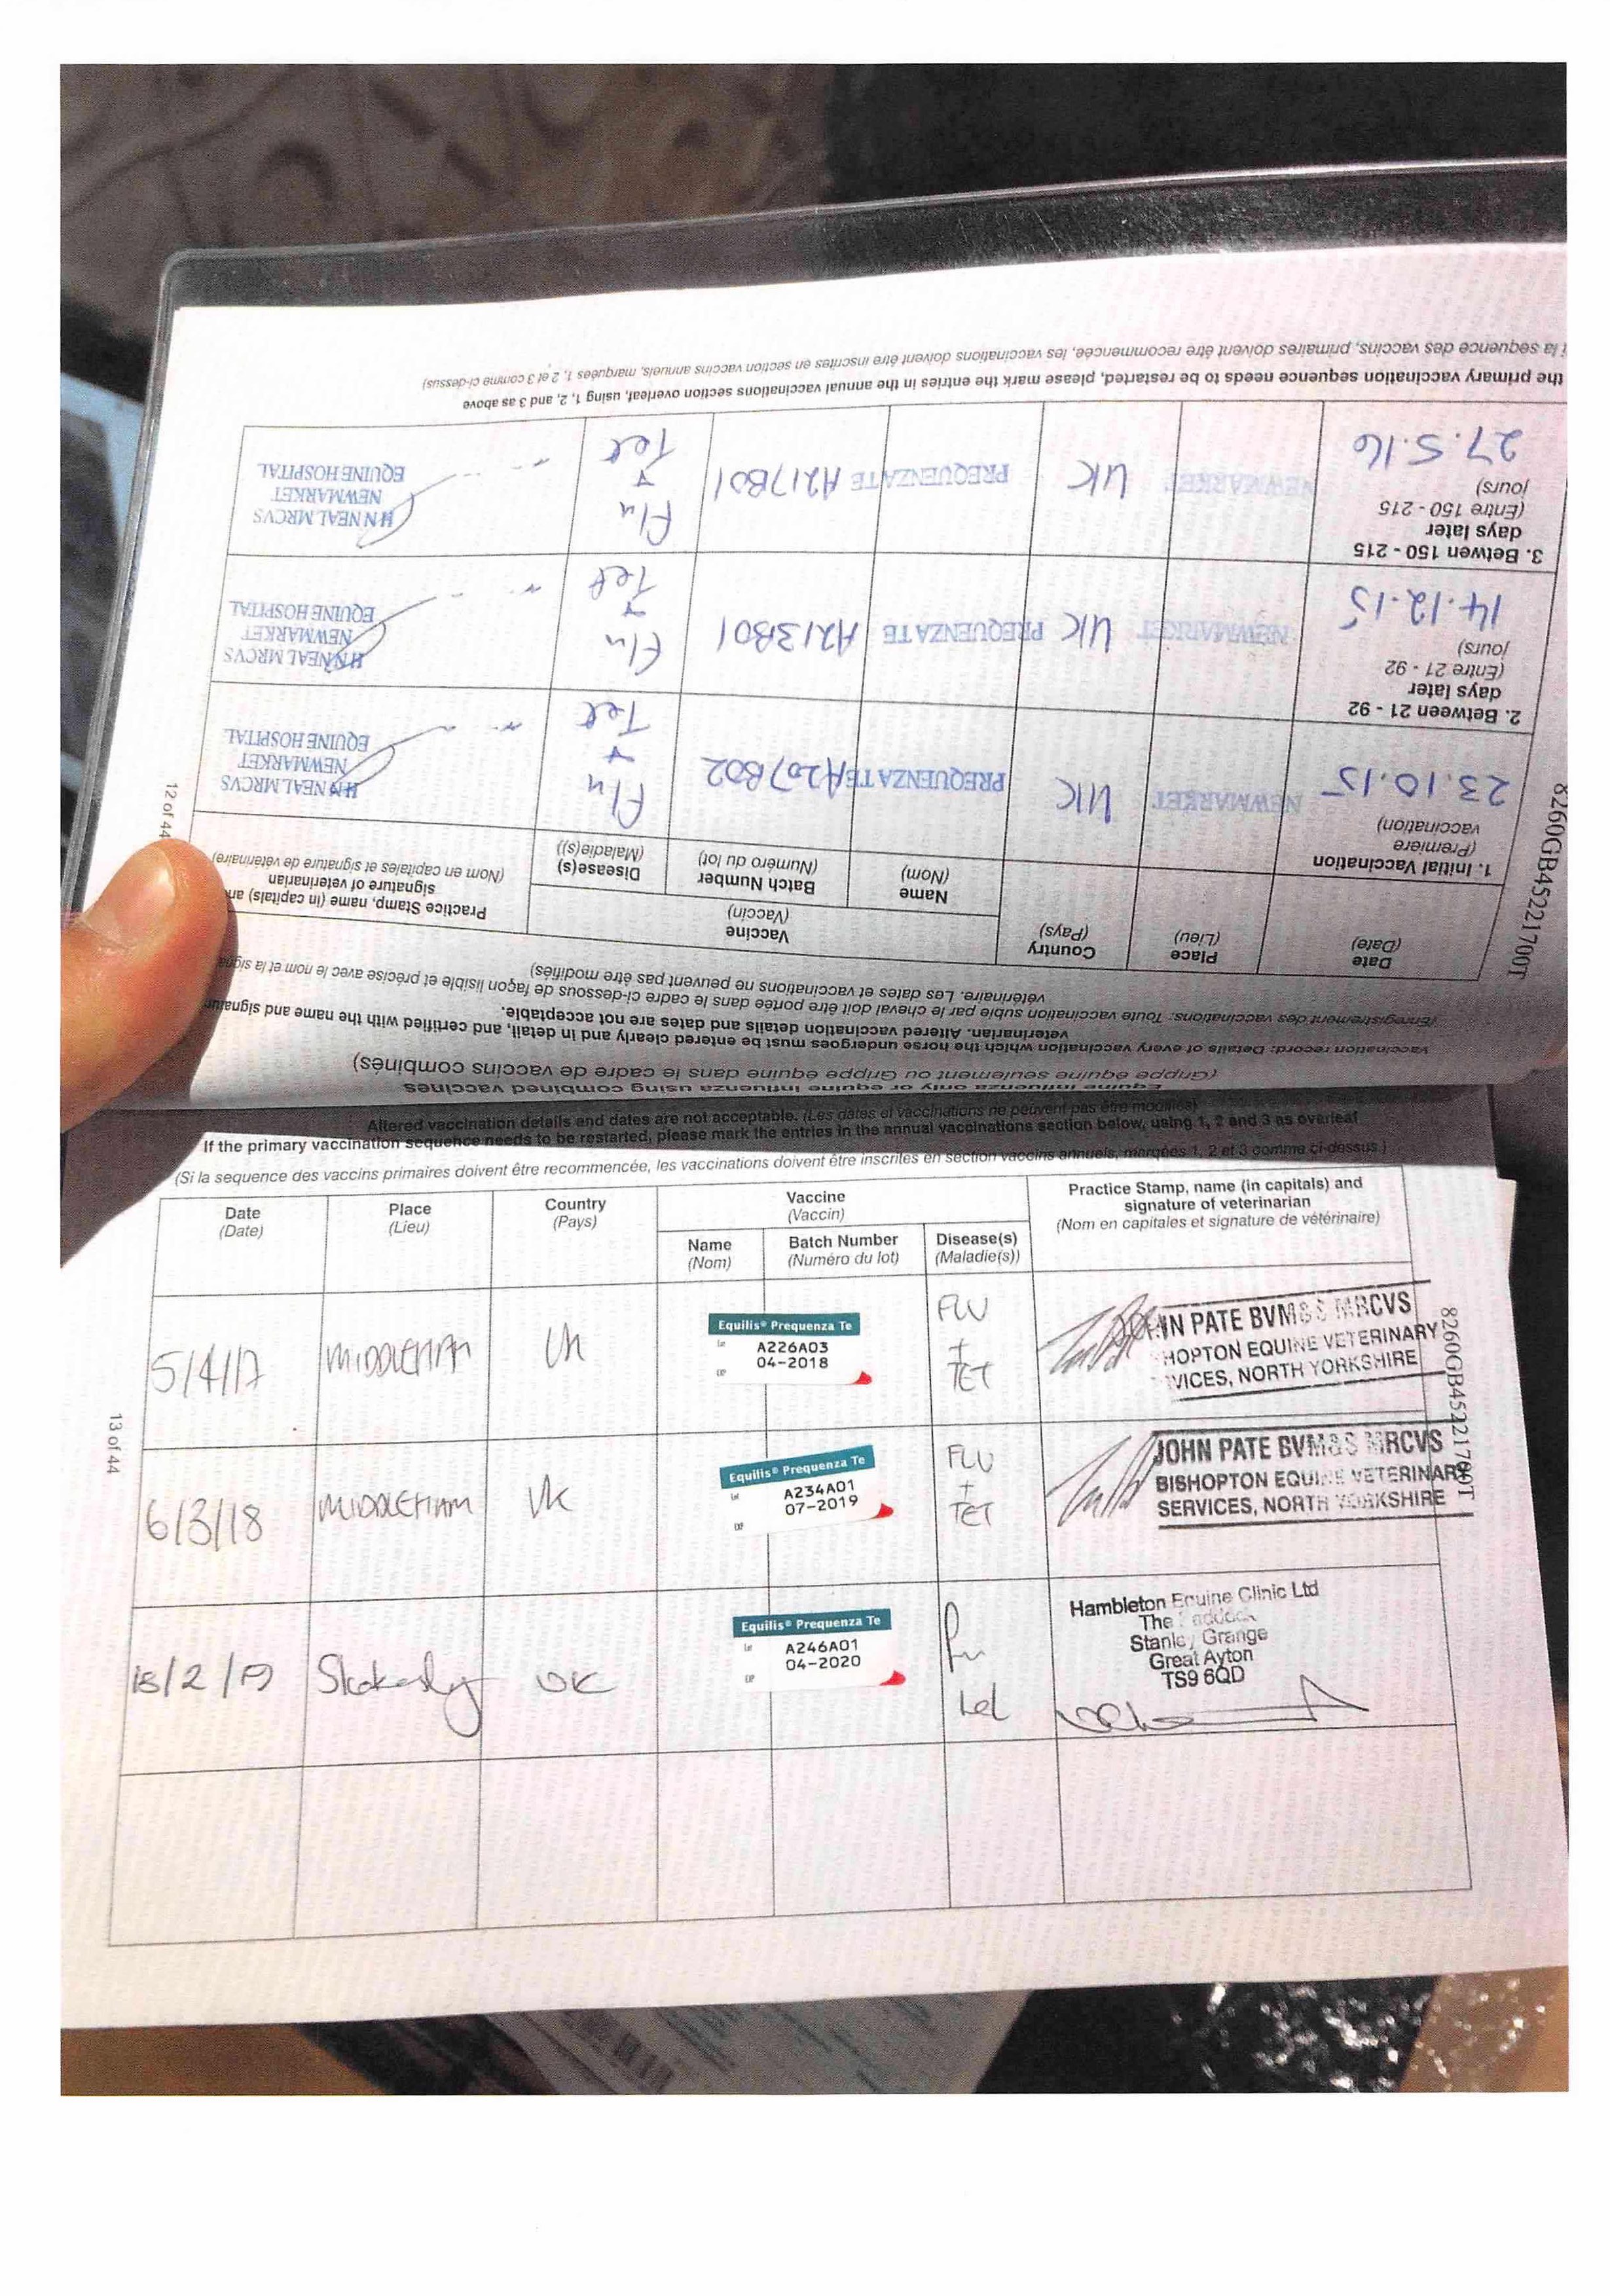 Equine influenza only or equine influenza using combined vaccines
(Grippe équine seulement ou Grippe équine dans le cadre de vaccins combinés)
Vaccination record: Details of every vaccination which the horse undergoes must be entered clearly and in detail, and certified with the name and
veterinarian. Altered vaccination details and dates are not acceptable.
(Enregistrement des vaccinations: Toute vaccination subie par le cheval doit être portée dans le cadre ci-dessous de façon lisible et précise avec le nom et la
vétérinaire. Les dates et vaccinations ne peuvent pas être modifiés)
Date
(Date)
Place
(Lieu)
Country
(Pays)
Vaccine
(Vaccin)
Name
(Nom)
Batch Number
(Numéro du lot)
Disease(s)
(Maladie(s))
Practice Stamp, name (in capitals)
signature of veterinarian
(Nom en capitales et signature de vétérinaire)
1. Initial Vaccination
(Première
vaccination)
23.10.15
NEWMARKET
UK
PREQUENZA TE
A207B02
Flu
+
Tet
N NEAL MRCVS
NEWMARKET
EQUINE HOSPITAL
2. Between 21 - 92
days later
(Entre 21 - 92
jours)
14.12.15
NEWMARKET
UK
PREQUENZA TE
A213B01
Flu
+
Tet
N NEAL MRCVS
NEWMARKET
EQUINE HOSPITAL
3. Betwen 150 - 215
days later
(Entre 150 - 215
jours)
27.5.16
NEWMARKET
UK
PREQUENZA TE
A217B01
Flu
+
Tet
N NEAL MRCVS
NEWMARKET
EQUINE HOSPITAL
the primary vaccination sequence needs to be restarted, please mark the entries in the annual vaccinations section overleaf, using 1, 2, and 3 as above
la sequence des vaccins, primaires doivent être recommencée, les vaccinations doivent être inscrites en section vaccins annuels, marquées 1, 2 et 3 comme ci-dessus)
8260GB45221700T
12 of 44
Altered vaccination details and dates are not acceptable. (Les dates et vaccinations ne peuvent pas être modifiés)
If the primary vaccination sequence needs to be restarted, please mark the entries in the annual vaccinations section below, using 1, 2 and 3 as overleaf
(Si la sequence des vaccins primaires doivent être recommencée, les vaccinations doivent être inscrites en section vaccins annuels, marquées 1, 2 et 3 comme ci-dessus.)
Date
(Date)
Place
(Lieu)
Country
(Pays)
Vaccine
(Vaccin)
Name
(Nom)
Batch Number
(Numéro du lot)
Disease(s)
(Maladie(s))
Practice Stamp, name (in capitals) and
signature of veterinarian
(Nom en capitales et signature de vétérinaire)
5/4/17
MIDDLEHAM
UK
Equilis® Prequenza Te
Lot A226A03
EXP 04-2018
FLU
+
TET
PATE BVM&S MRCVS
HOPTON EQUINE VETERINARY
VICES, NORTH YORKSHIRE
6/3/18
MIDDLEHAM
UK
Equilis® Prequenza Te
Lot A234A01
EXP 07-2019
FLU
+
TET
JOHN PATE BVM&S MRCVS
BISHOPTON EQUINE VETERINARY
SERVICES, NORTH YORKSHIRE
/2/19
Stokesley
UK
Equilis® Prequenza Te
Lot A246A01
EXP 04-2020
Flu
tet
Hambleton Equine Clinic Ltd
The Paddock
Stanley Grange
Great Ayton
TS9 6QD
8260GB45221700T
13 of 44